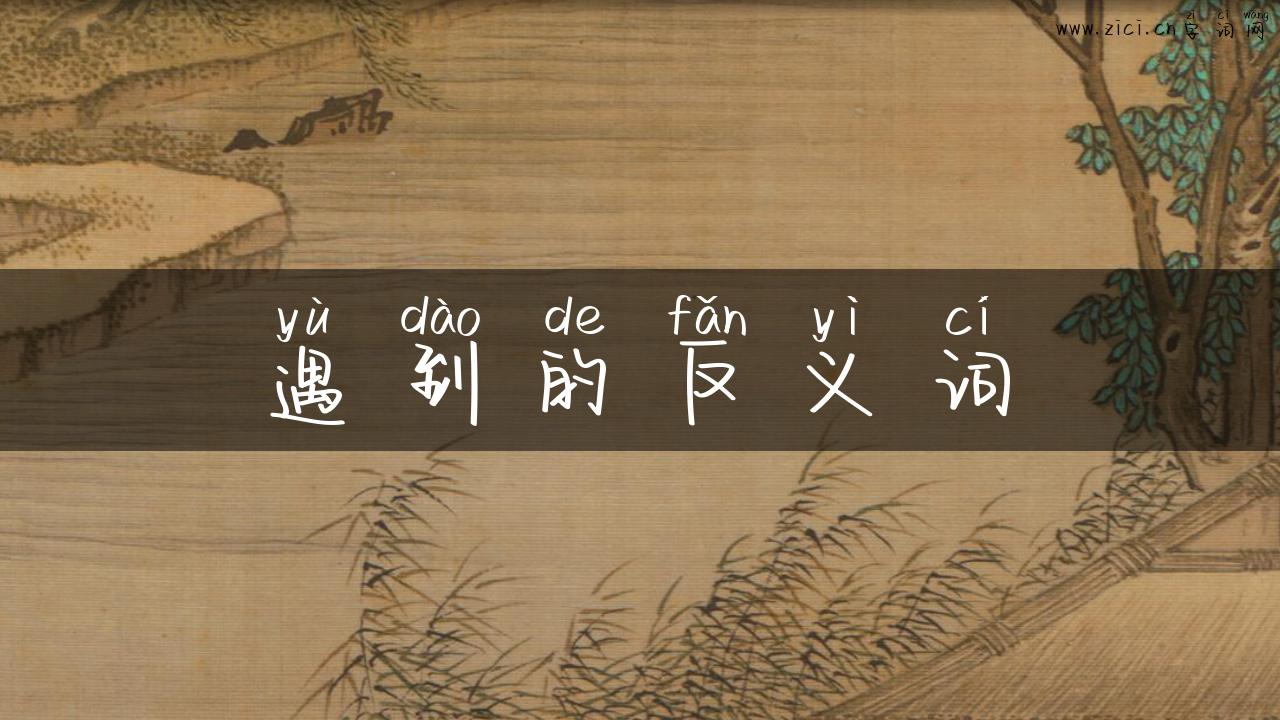 zì cí wǎng
www.zici.cn字词网
yù dào de fǎn yì cí
遇到的反义词